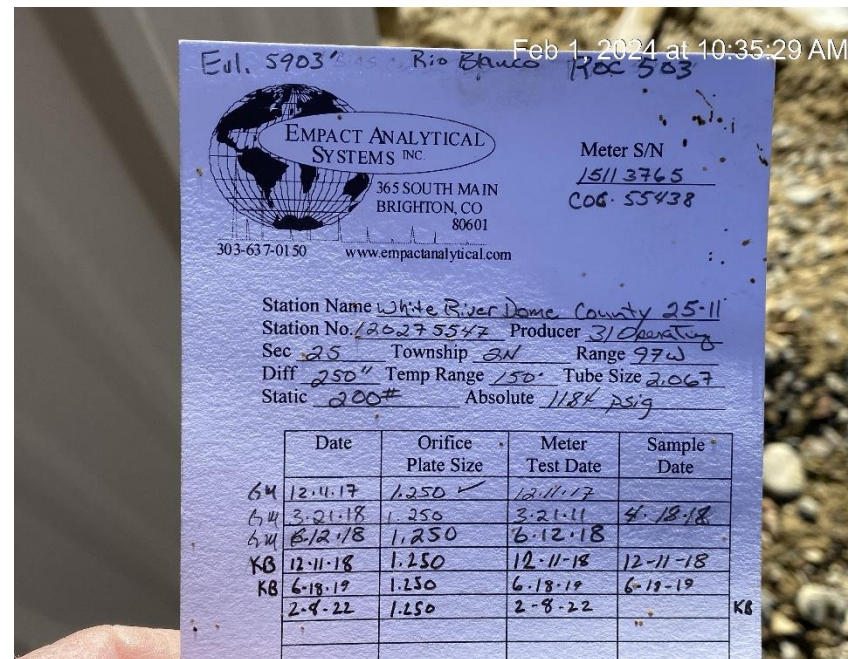 Feb 1, 2024 at 10:35:29 AM
Evl. 5903' Rio Blanco ROC 503
EMPACT ANALYTICAL
SYSTEMS INC.
365 SOUTH MAIN
BRIGHTON, CO
80601
303-637-0150 www.empactanalytical.com
Meter S/N
15113765
COC. 55438
Station Name White River Dome County 25-11
Station No. 120275547 Producer 31 Operating
Sec 25 Township 2N Range 97W
Diff 250" Temp Range 150° Tube Size 2.067
Static 200# Absolute 11.84 psig
Date Orifice Plate Size Meter Test Date Sample Date
GM 12.11.17 1.250 ✓ 12.11.17
GM 3.21.18 1.250 3.21.11 4.18.18
GM 6.12.18 1.250 6.12.18
KB 12.11.18 1.250 12-11-18 12-11-18
KB 6-18-19 1.250 6.18.19 6-18-19
2-8-22 1.250 2-8-22 KB